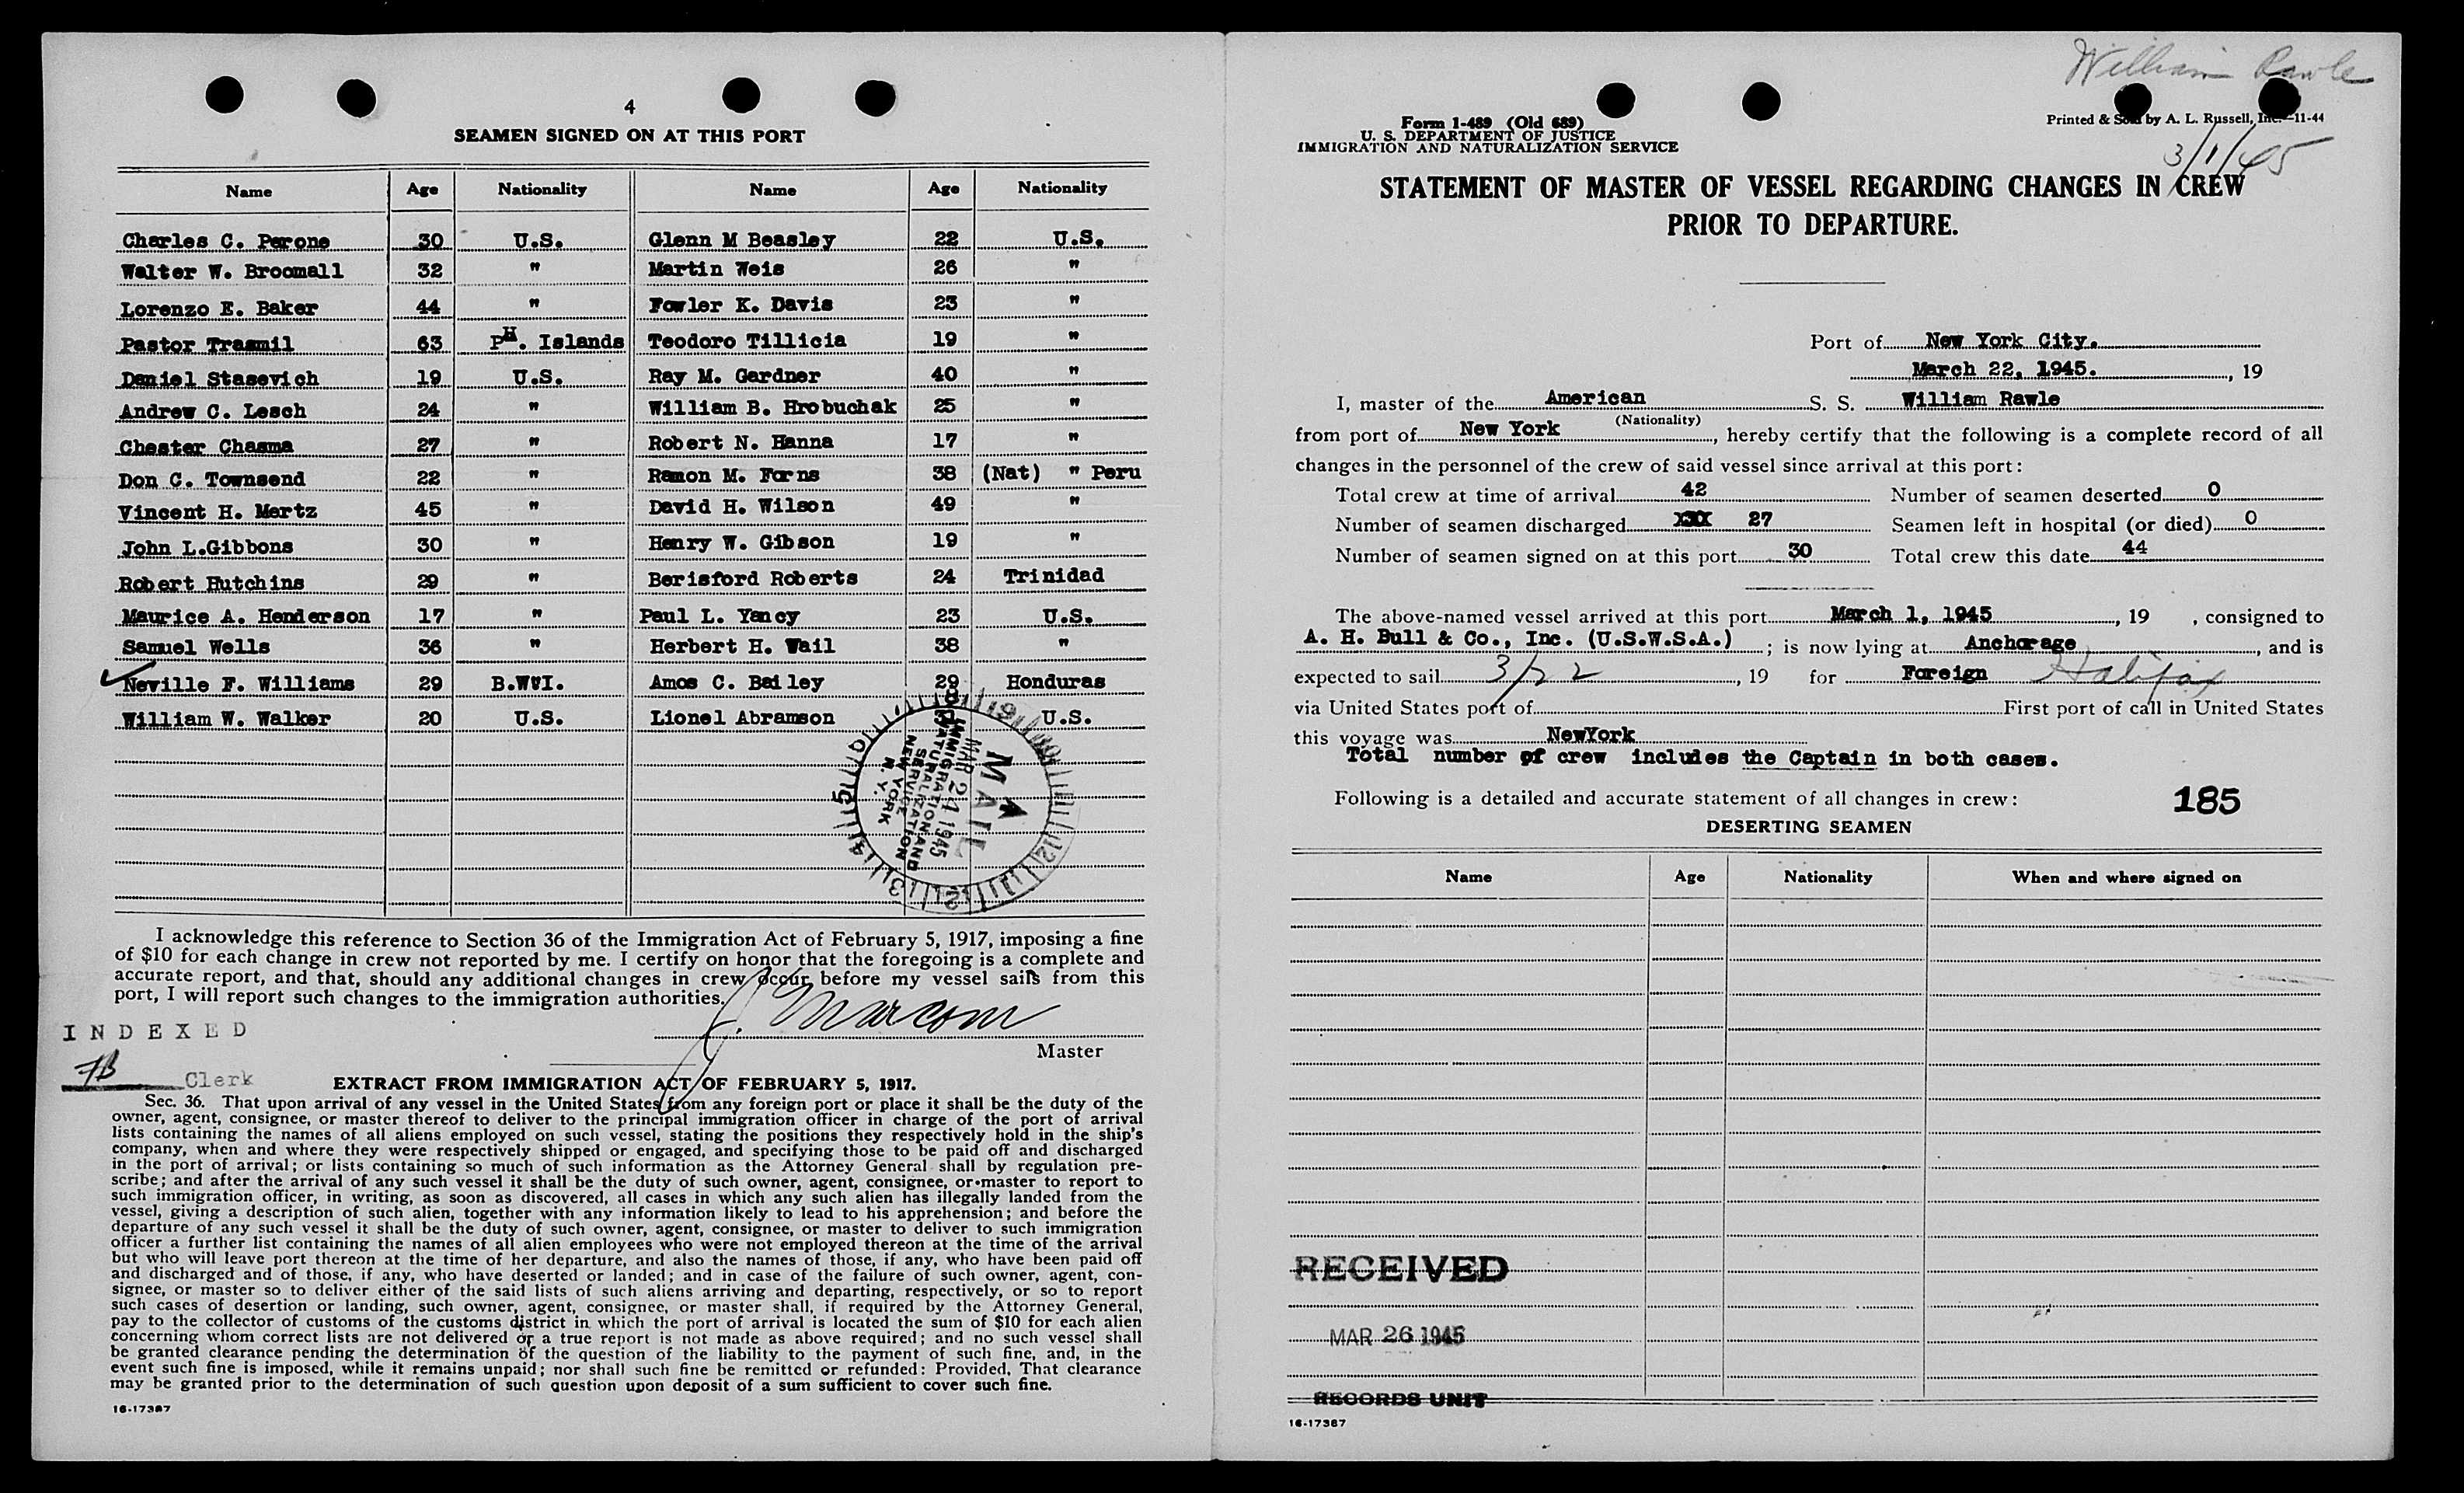 4
SEAMEN SIGNED ON AT THIS PORT
Name Age Nationality Name Age Nationality
Charles C. Perone 30 U.S. Glenn M Beasley 22 U.S.
Walter W. Broomall 32 " Martin Weis 26 "
Lorenzo E. Baker 44 " Fowler K. Davis 23 "
Pastor Trasmil 63 PH. Islands Teodoro Tillicia 19 "
Daniel Stasevich 19 U.S. Ray M. Gardner 40 "
Andrew C. Lesch 24 " William B. Hrobuchak 25 "
Chester Chasma 27 " Robert N. Hanna 17 "
Don C. Townsend 22 " Ramon M. Forns 38 (Nat) " Peru
Vincent H. Mertz 45 " David H. Wilson 49 "
John L.Gibbons 30 " Henry W. Gibson 19 "
Robert Hutchins 29 " Berisford Roberts 24 Trinidad
Maurice A. Henderson 17 " Paul L. Yancy 23 U.S.
Samuel Wells 36 " Herbert H. Wail 38 "
Neville F. Williams 29 B.WVI. Amos C. Bailey 29 Honduras
William W. Walker 20 U.S. Lionel Abramson U.S.
MAIL
MAR 24 1945
IMMIGRATION AND
NATURALIZATION
SERVICE
NEW YORK
N. Y.
I acknowledge this reference to Section 36 of the Immigration Act of February 5, 1917, imposing a fine
of $10 for each change in crew not reported by me. I certify on honor that the foregoing is a complete and
accurate report, and that, should any additional changes in crew occur before my vessel sails from this
port, I will report such changes to the immigration authorities.
J. Marcom
Master
INDEXED
FB Clerk
EXTRACT FROM IMMIGRATION ACT OF FEBRUARY 5, 1917.
Sec. 36. That upon arrival of any vessel in the United States from any foreign port or place it shall be the duty of the
owner, agent, consignee, or master thereof to deliver to the principal immigration officer in charge of the port of arrival
lists containing the names of all aliens employed on such vessel, stating the positions they respectively hold in the ship's
company, when and where they were respectively shipped or engaged, and specifying those to be paid off and discharged
in the port of arrival; or lists containing so much of such information as the Attorney General shall by regulation pre-
scribe; and after the arrival of any such vessel it shall be the duty of such owner, agent, consignee, or master to report to
such immigration officer, in writing, as soon as discovered, all cases in which any such alien has illegally landed from the
vessel, giving a description of such alien, together with any information likely to lead to his apprehension; and before the
departure of any such vessel it shall be the duty of such owner, agent, consignee, or master to deliver to such immigration
officer a further list containing the names of all alien employees who were not employed thereon at the time of the arrival
but who will leave port thereon at the time of her departure, and also the names of those, if any, who have been paid off
and discharged and of those, if any, who have deserted or landed; and in case of the failure of such owner, agent, con-
signee, or master so to deliver either of the said lists of such aliens arriving and departing, respectively, or so to report
such cases of desertion or landing, such owner, agent, consignee, or master shall, if required by the Attorney General,
pay to the collector of customs of the customs district in which the port of arrival is located the sum of $10 for each alien
concerning whom correct lists are not delivered or a true report is not made as above required; and no such vessel shall
be granted clearance pending the determination of the question of the liability to the payment of such fine, and, in the
event such fine is imposed, while it remains unpaid; nor shall such fine be remitted or refunded: Provided, That clearance
may be granted prior to the determination of such question upon deposit of a sum sufficient to cover such fine.
16-17367
William Rawle
Form 1-489 (Old 689)
U. S. DEPARTMENT OF JUSTICE
IMMIGRATION AND NATURALIZATION SERVICE
Printed & Sold by A. L. Russell, Inc.—11-44
3/1/45
STATEMENT OF MASTER OF VESSEL REGARDING CHANGES IN CREW
PRIOR TO DEPARTURE.
Port of New York City.
March 22, 1945. , 19
I, master of the American S. S. William Rawle
(Nationality)
from port of New York , hereby certify that the following is a complete record of all
changes in the personnel of the crew of said vessel since arrival at this port:
Total crew at time of arrival 42 Number of seamen deserted 0
Number of seamen discharged XXX 27 Seamen left in hospital (or died) 0
Number of seamen signed on at this port 30 Total crew this date 44
The above-named vessel arrived at this port March 1, 1945 , 19 , consigned to
A. H. Bull & Co., Inc. (U.S.W.S.A.) ; is now lying at Anchorage , and is
expected to sail 3/22 , 19 for Foreign Halifax
via United States port of First port of call in United States
this voyage was NewYork
Total number of crew includes the Captain in both cases.
Following is a detailed and accurate statement of all changes in crew: 185
DESERTING SEAMEN
Name Age Nationality When and where signed on
RECEIVED
MAR 26 1945
RECORDS UNIT
16-17367